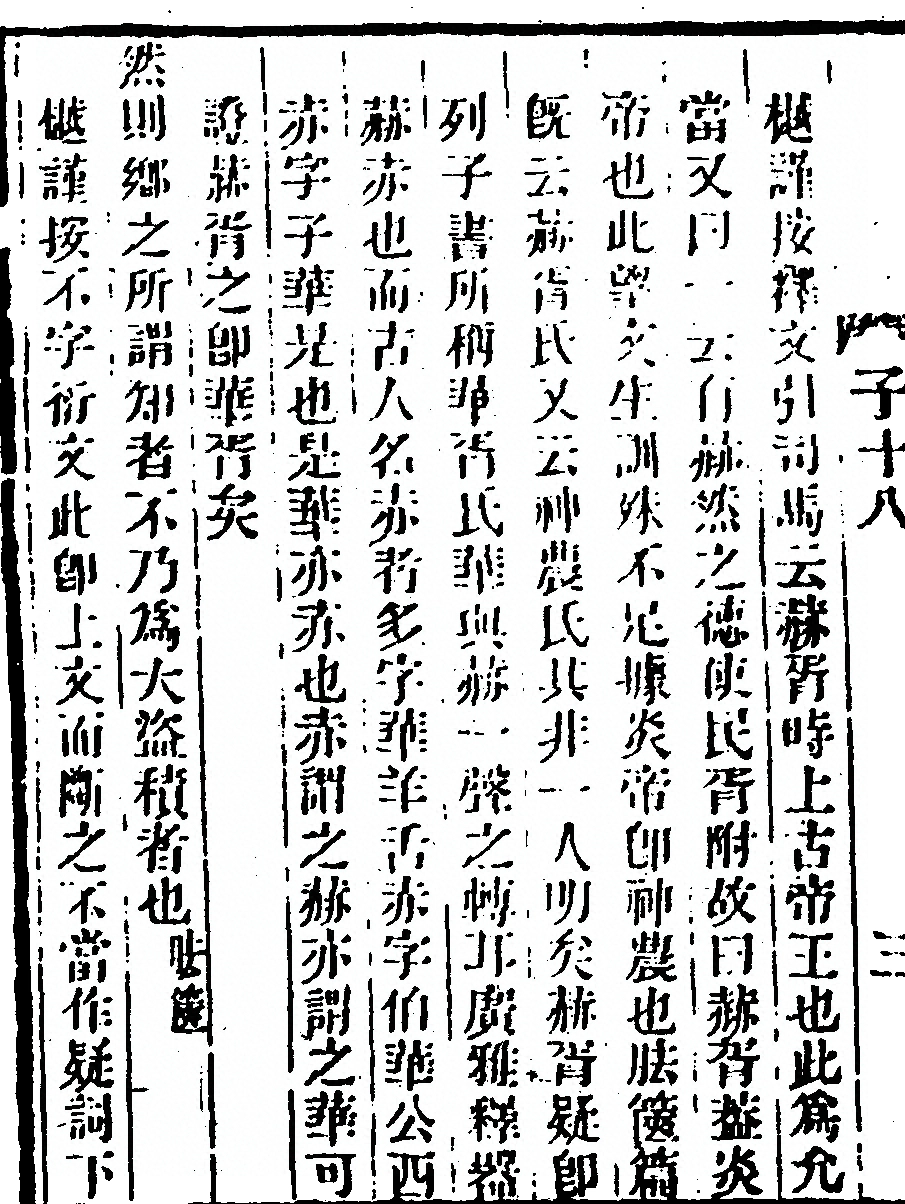 子十八
三
樾謹按釋文引司馬云赫胥時上古帝王也此爲允
當又曰一云有赫然之德使民胥附故曰赫胥葢炎
帝也此望文生訓殊不足據炎帝卽神農也胠篋篇
旣云赫胥氏又云神農氏其非一人明矣赫胥疑卽
列子書所稱華胥氏華與赫一聲之轉耳廣雅釋器
赫赤也而古人名赤者多字華羊舌赤字伯華公西
赤字子華是也是華亦赤也赤謂之赫亦謂之華可
證赫胥之卽華胥矣
然則鄉之所謂知者不乃爲大盜積者也胠篋
樾謹按不字衍文此卽上文而斷之不當作疑詞下